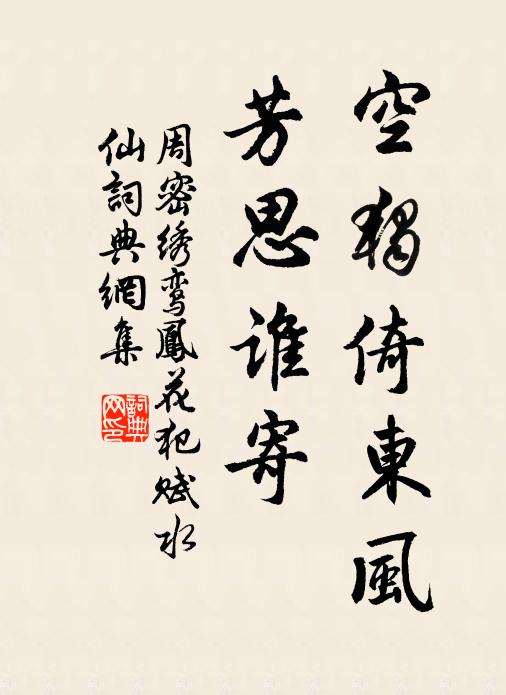 空獨倚東風
芳思誰寄
周密绣鸾鳳花犯赋水
仙詞典網集
詞典
网印